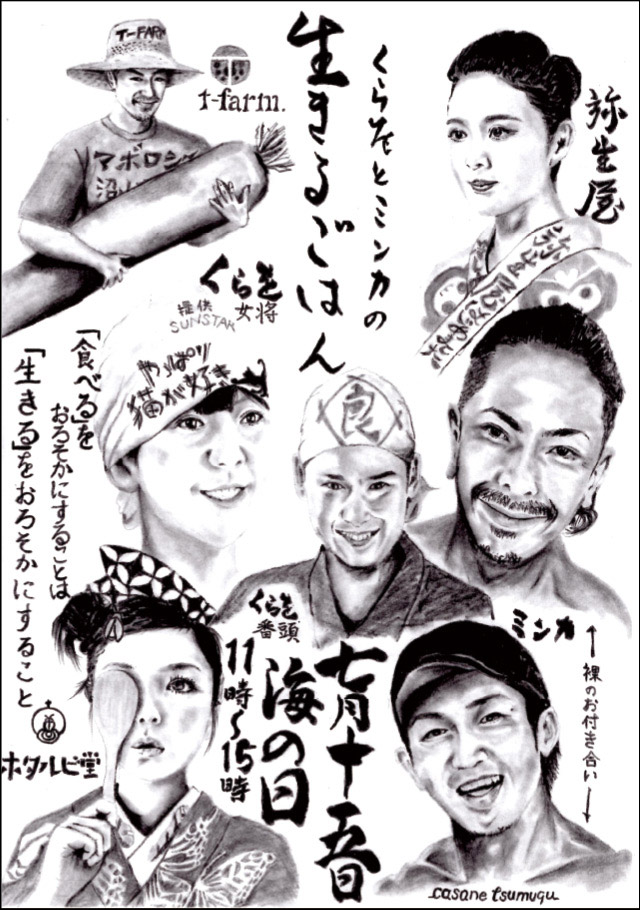 くらをとミンカの
生きるごはん
T-FARM
t-farm.
マボロシ
沼
弥生屋
くらを
女将
提供
SUNSTAR
やっぱり
猫が好き
「食べる」を
おろそかにすることは
「生きる」をおろそかにすること
良
くらを
番頭
ミンカ
↑裸のお付き合い↓
ホタルビ堂
七月十五日
海の日
11時〜15時
casane tsumugu